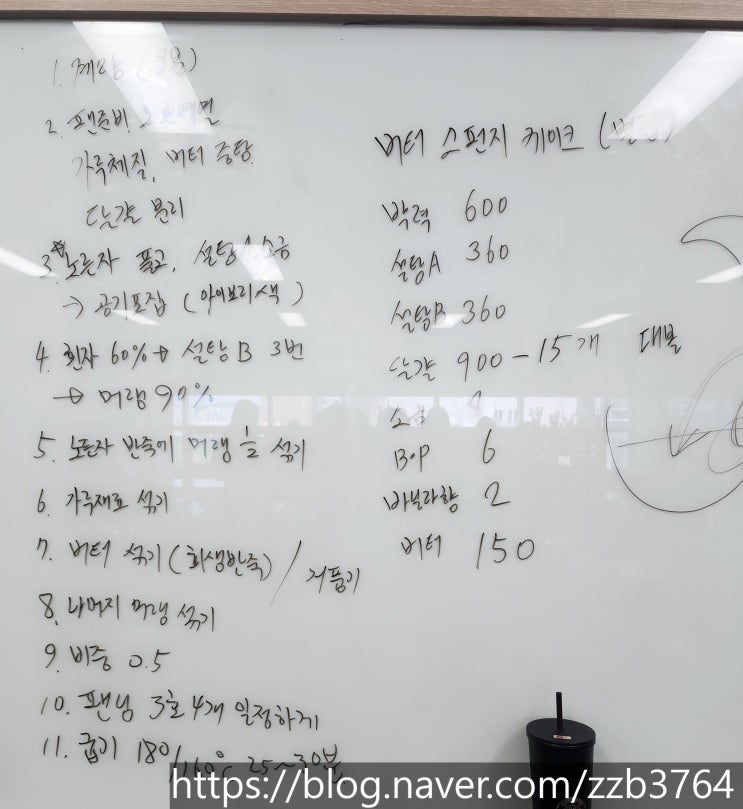 1. 계량
2. 팬준비, 오븐예열
가루체질, 버터 중탕
달걀 분리
3. 노른자 풀고, 설탕A, 소금
→ 공기포집 (아이보리색)
4. 흰자 60% → 설탕B 3번
→ 머랭 90%
5. 노른자 반죽에 머랭 ½ 섞기
6. 가루재료 섞기
7. 버터 섞기 (희생반죽) / 거품기
8. 나머지 머랭 섞기
9. 비중 0.5
10. 팬닝 3호 4개 일정하게
11. 굽기 180/160℃ 25~30분
버터 스펀지 케이크
박력 600
설탕A 360
설탕B 360
달걀 900 - 15개
소금
B.P 6
바닐라향 2
버터 150
https://blog.naver.com/zzb3764